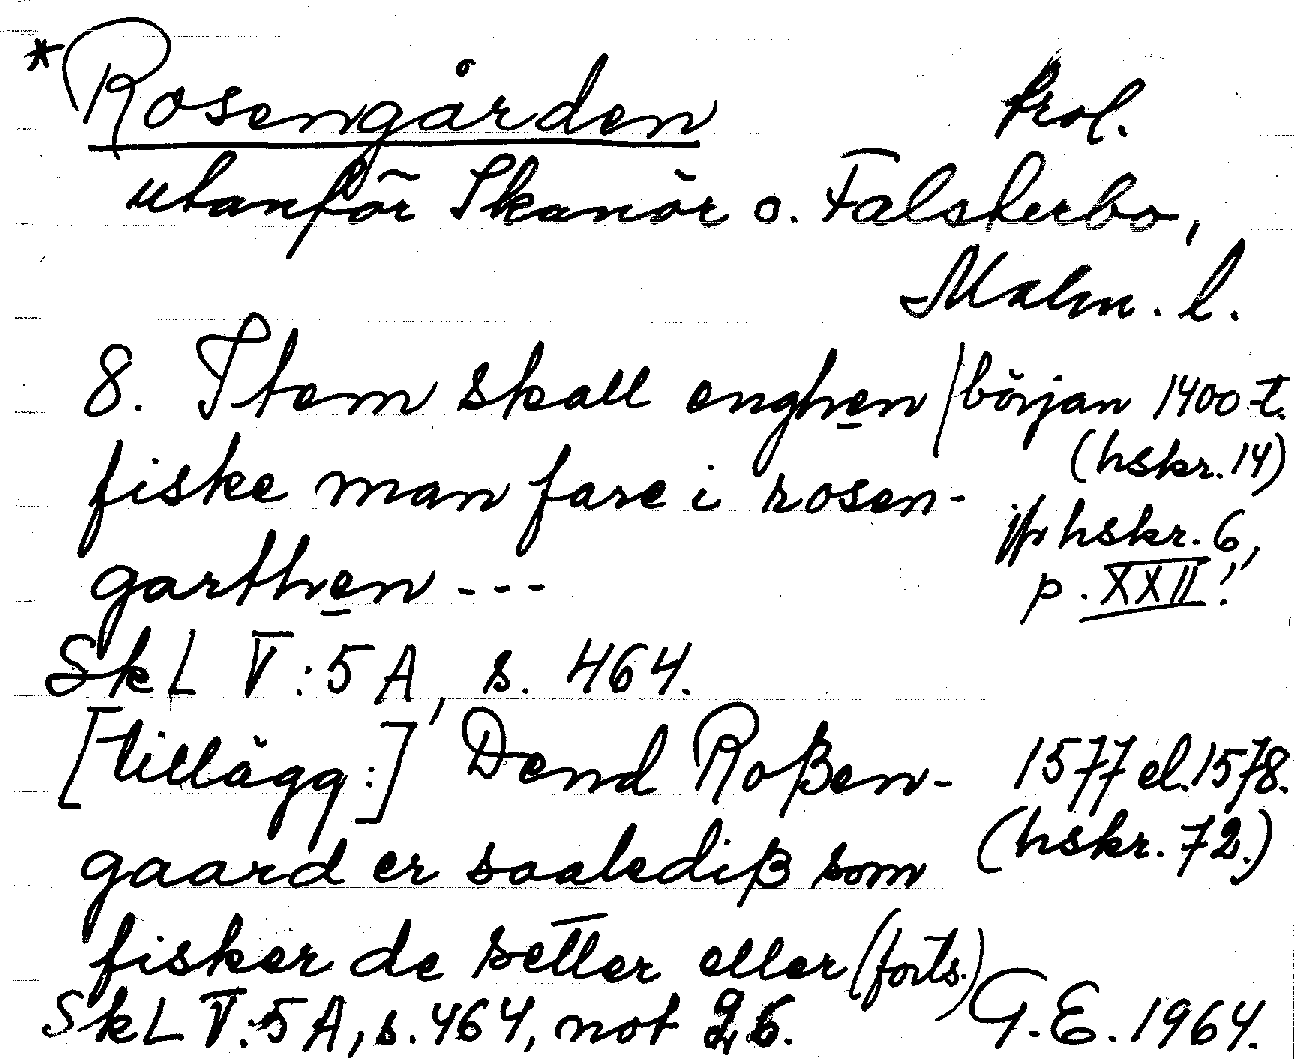 *Rosengården
krol.
utanför Skanör o. Falsterbo,
Malm. l.
8. Item skall enghen
fiske man fare i rosen-
garthen ---
början 1400-t.
(hskr. 14)
jfr hskr. 6,
p. XXII!
SkL V:5A, s. 464.
[tillägg:] Dend Roßen-
gaard er saalediß som
fisker de setter eller (forts.)
1577 el. 1578.
(hskr. 72.)
SkL V:5A, s. 464, not 26.
G.E. 1964.